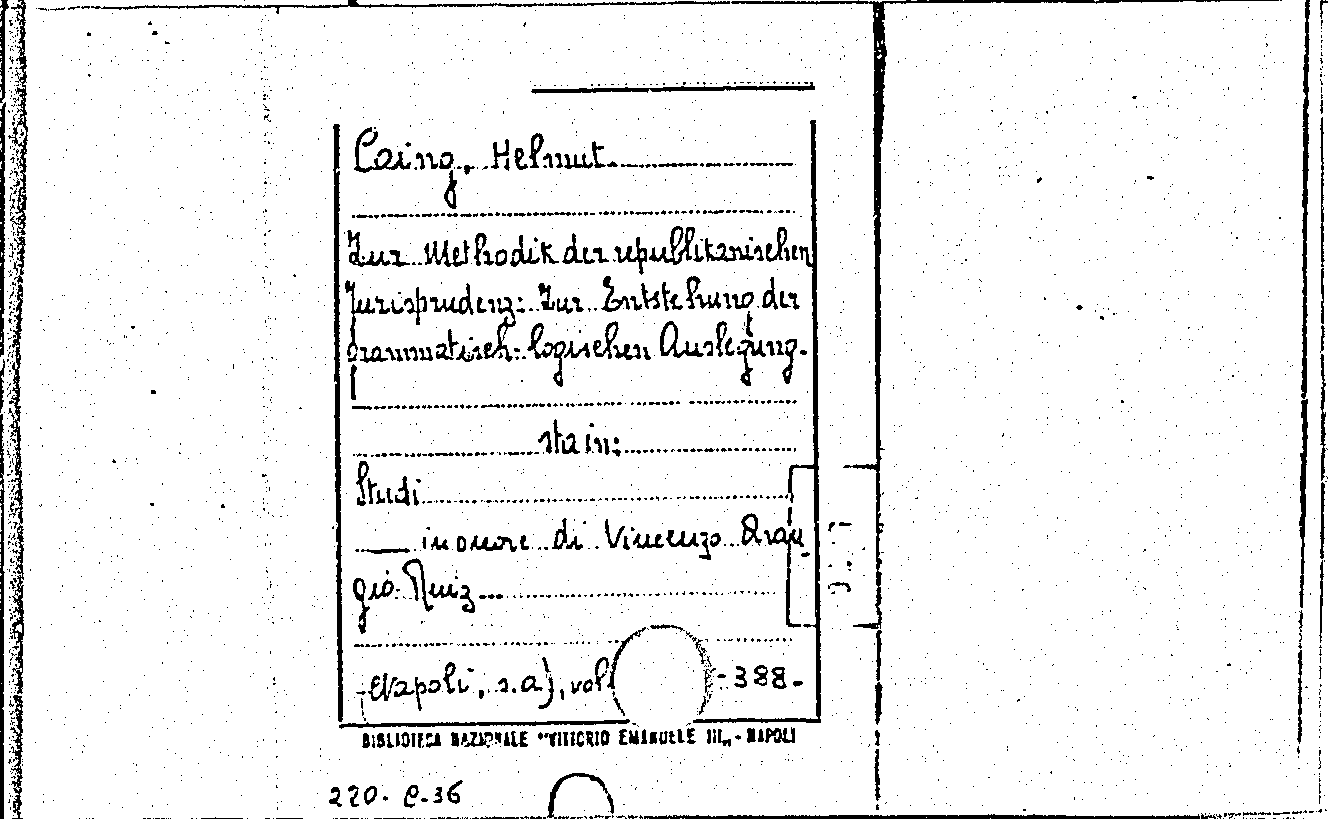 Coing, Helmut.
Zur Methodik der republikanischen
Jurisprudenz: Zur Entstehung der
grammatisch-logischen Auslegung.
sta in:
Studi
___ in onore di Vincenzo Aran
gio-Ruiz...
(Napoli, s.a), vol. -388-
BIBLIOTECA NAZIONALE "VITTORIO EMANUELE III„ - NAPOLI
220. C. 36